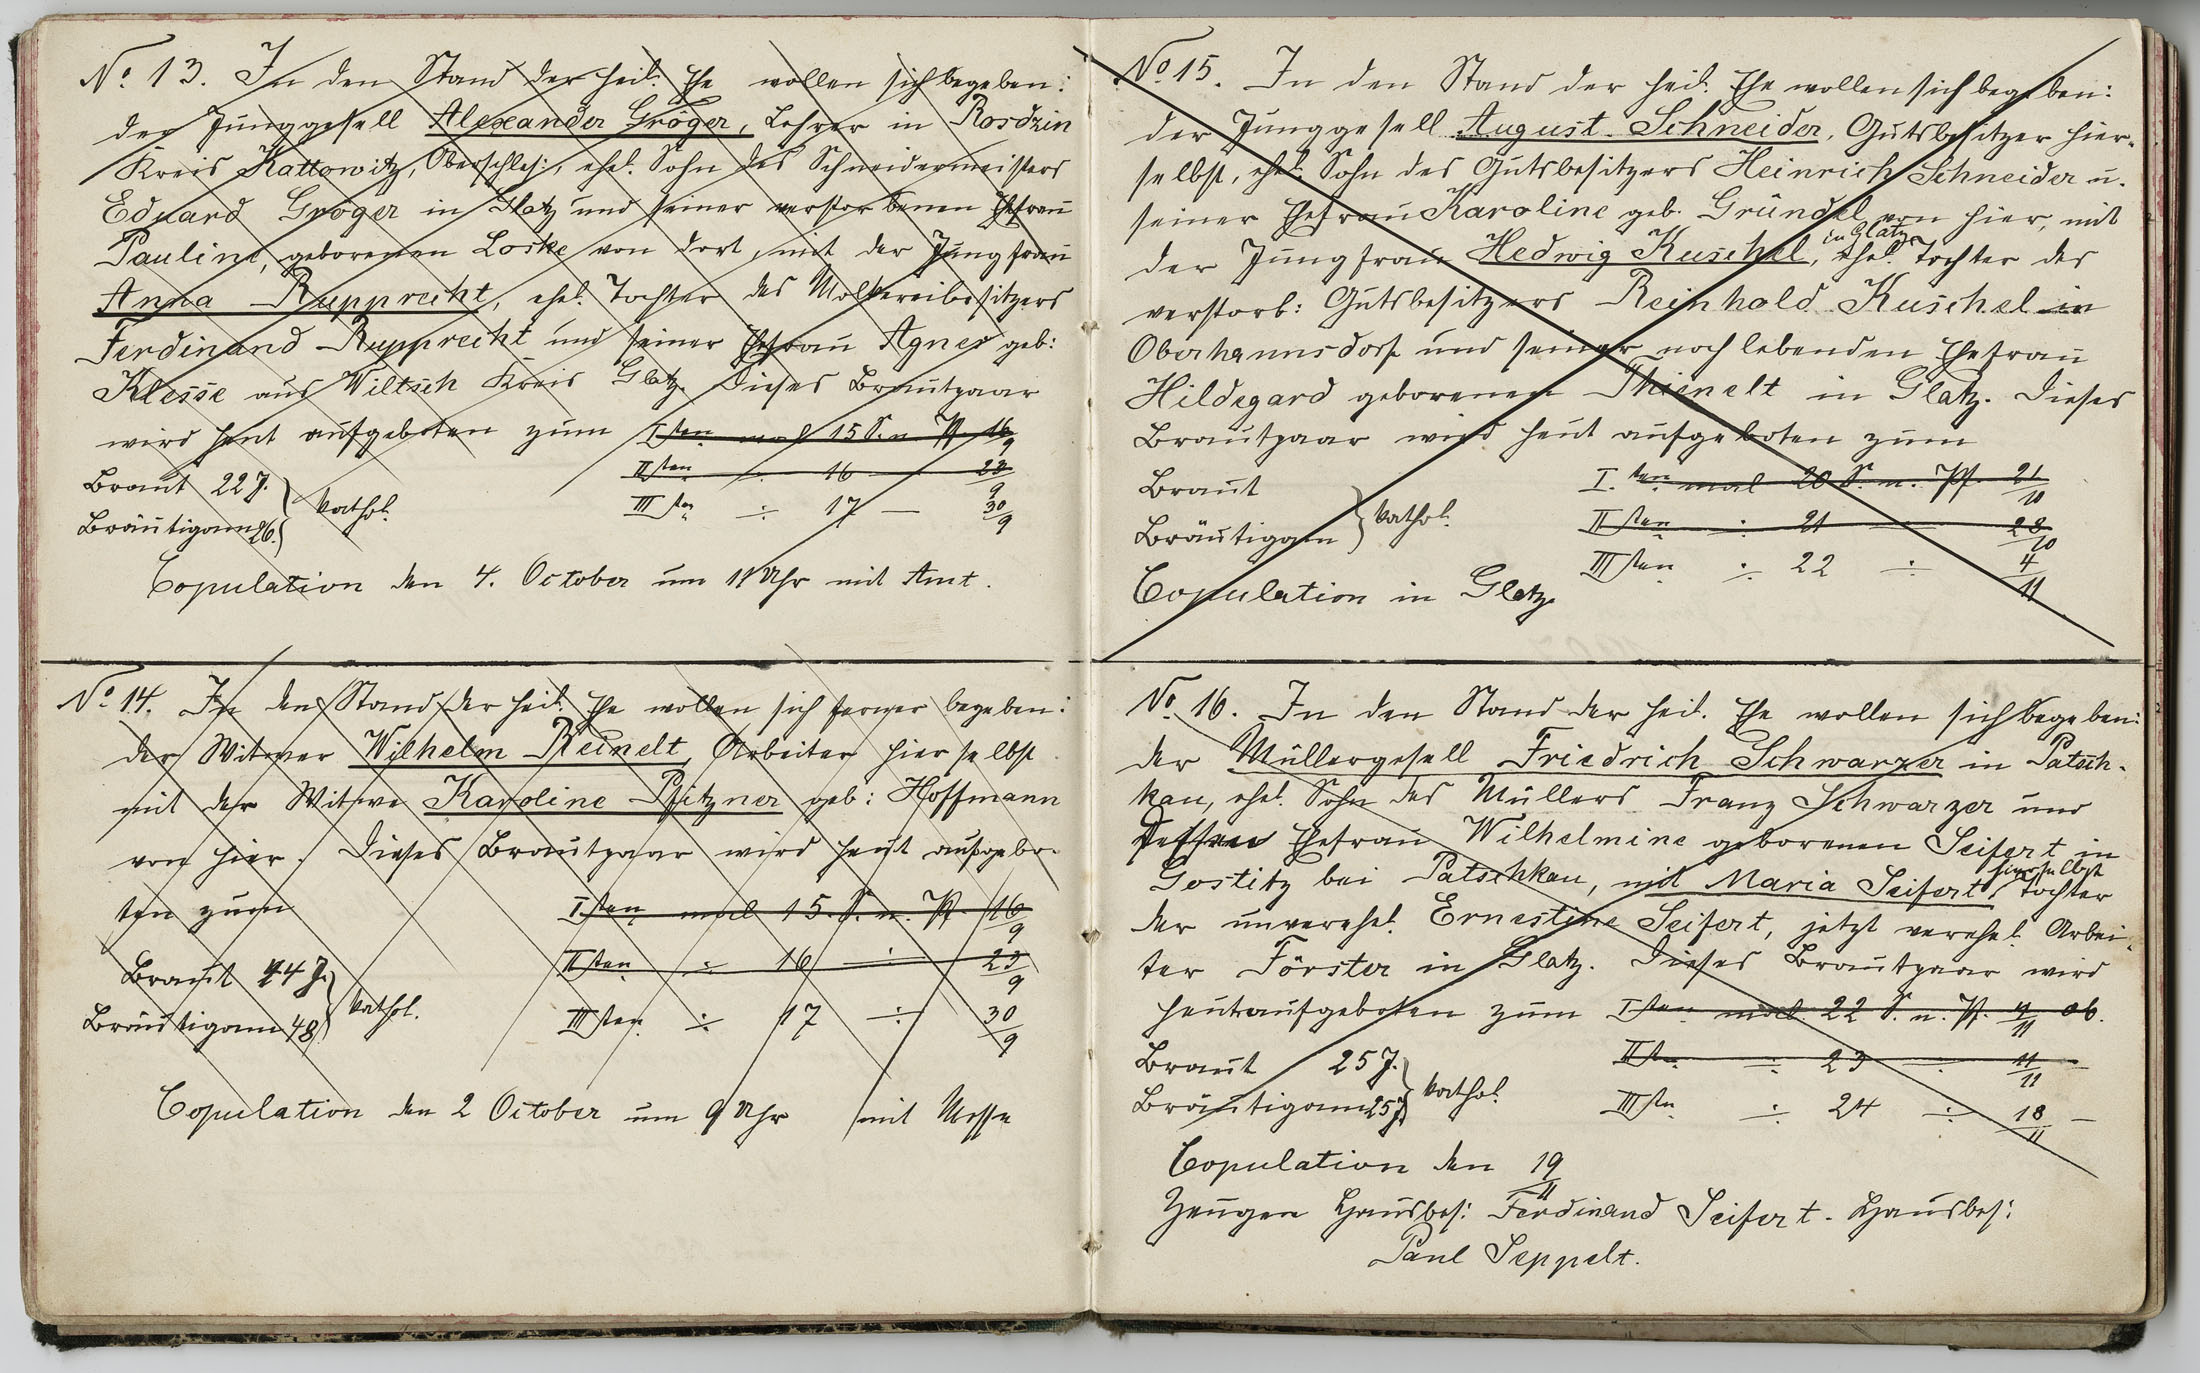 No 13. In den Stand der heil. Ehe wollen sich begeben:
der Junggesell Alexander Gröger, Lehrer in Rosdzin
Kreis Kattowitz, Oberschles:, ehel. Sohn des Schneidermeisters
Eduard Gröger in Glatz und seiner verstorbenen Ehefrau
Pauline, geborenen Loske von dort, mit der Jungfrau
Anna Rupprecht, ehel. Tochter des Molkereibesitzers
Ferdinand Rupprecht und seiner Ehefrau Agnes geb:
Klesse aus Wiltsch Kreis Glatz. Dieses Brautpaar
wird heut aufgeboten zum Iten mal 15 S. n. Pf. 16/9
IIten ÷ 16 — 23/9
IIIten ÷ 17 — 30/9
Braut 22 J.
Bräutigam 26. } kathol.
Copulation den 4. October um 11 Uhr mit Amt.
No 14. In den Stand der heil. Ehe wollen sich ferner begeben:
der Witwer Wilhelm Reinelt, Arbeiter hierselbst
mit der Witwe Karoline Pfitzner geb: Hoffmann
von hier. Dieses Brautpaar wird heut aufgebo-
ten zum Iten mal 15. S. n. Pf. 16/9
IIten ÷ 16 ÷ 23/9
IIIten ÷ 17 ÷ 30/9
Braut 44 J.
Bräutigam 48 } kathol.
Copulation den 2 October um 9 Uhr mit Messe
No 15. In den Stand der heil. Ehe wollen sich begeben:
der Junggesell August Schneider, Gutsbesitzer hier-
selbst, ehel. Sohn des Gutsbesitzers Heinrich Schneider u.
seiner Ehefrau Karoline geb. Gründel von hier, mit
der Jungfrau Hedwig Kuschel, in Glatz ehel. Tochter des
verstorb: Gutsbesitzers Reinhold Kuschel in
Oberhannsdorf und seiner noch lebenden Ehefrau
Hildegard geborenen Thienelt in Glatz. Dieses
Brautpaar wird heut aufgeboten zum
I.ten mal 20 S. n. Pf. 21/10
IIten ÷ 21 ÷ 28/10
IIIten ÷ 22 ÷ 4/11
Braut
Bräutigam } kathol.
Copulation in Glatz
No 16. In den Stand der heil. Ehe wollen sich begeben:
der Müllergesell Friedrich Schwarzer in Patsch-
kau, ehel. Sohn des Müllers Franz Schwarzer und
dessen Ehefrau Wilhelmine geborenen Seifert in
Gostitz bei Patschkau, mit Maria Seifert, hierselbst Tochter
der unverehel. Ernestine Seifert, jetzt verehel. Arbei-
ter Förster in Glatz. Dieses Brautpaar wird
heut aufgeboten zum Iten mal. 22 S. n. Pf. 4/11 ab.
IIten ÷ 23 ÷ 11/11 —
IIIten ÷ 24 ÷ 18/11 —
Braut 25 J.
Bräutigam 25 J. } kathol.
Copulation den 19/11
Zeugen Hausbes: Ferdinand Seifert. Hausbes:
Paul Seppelt.